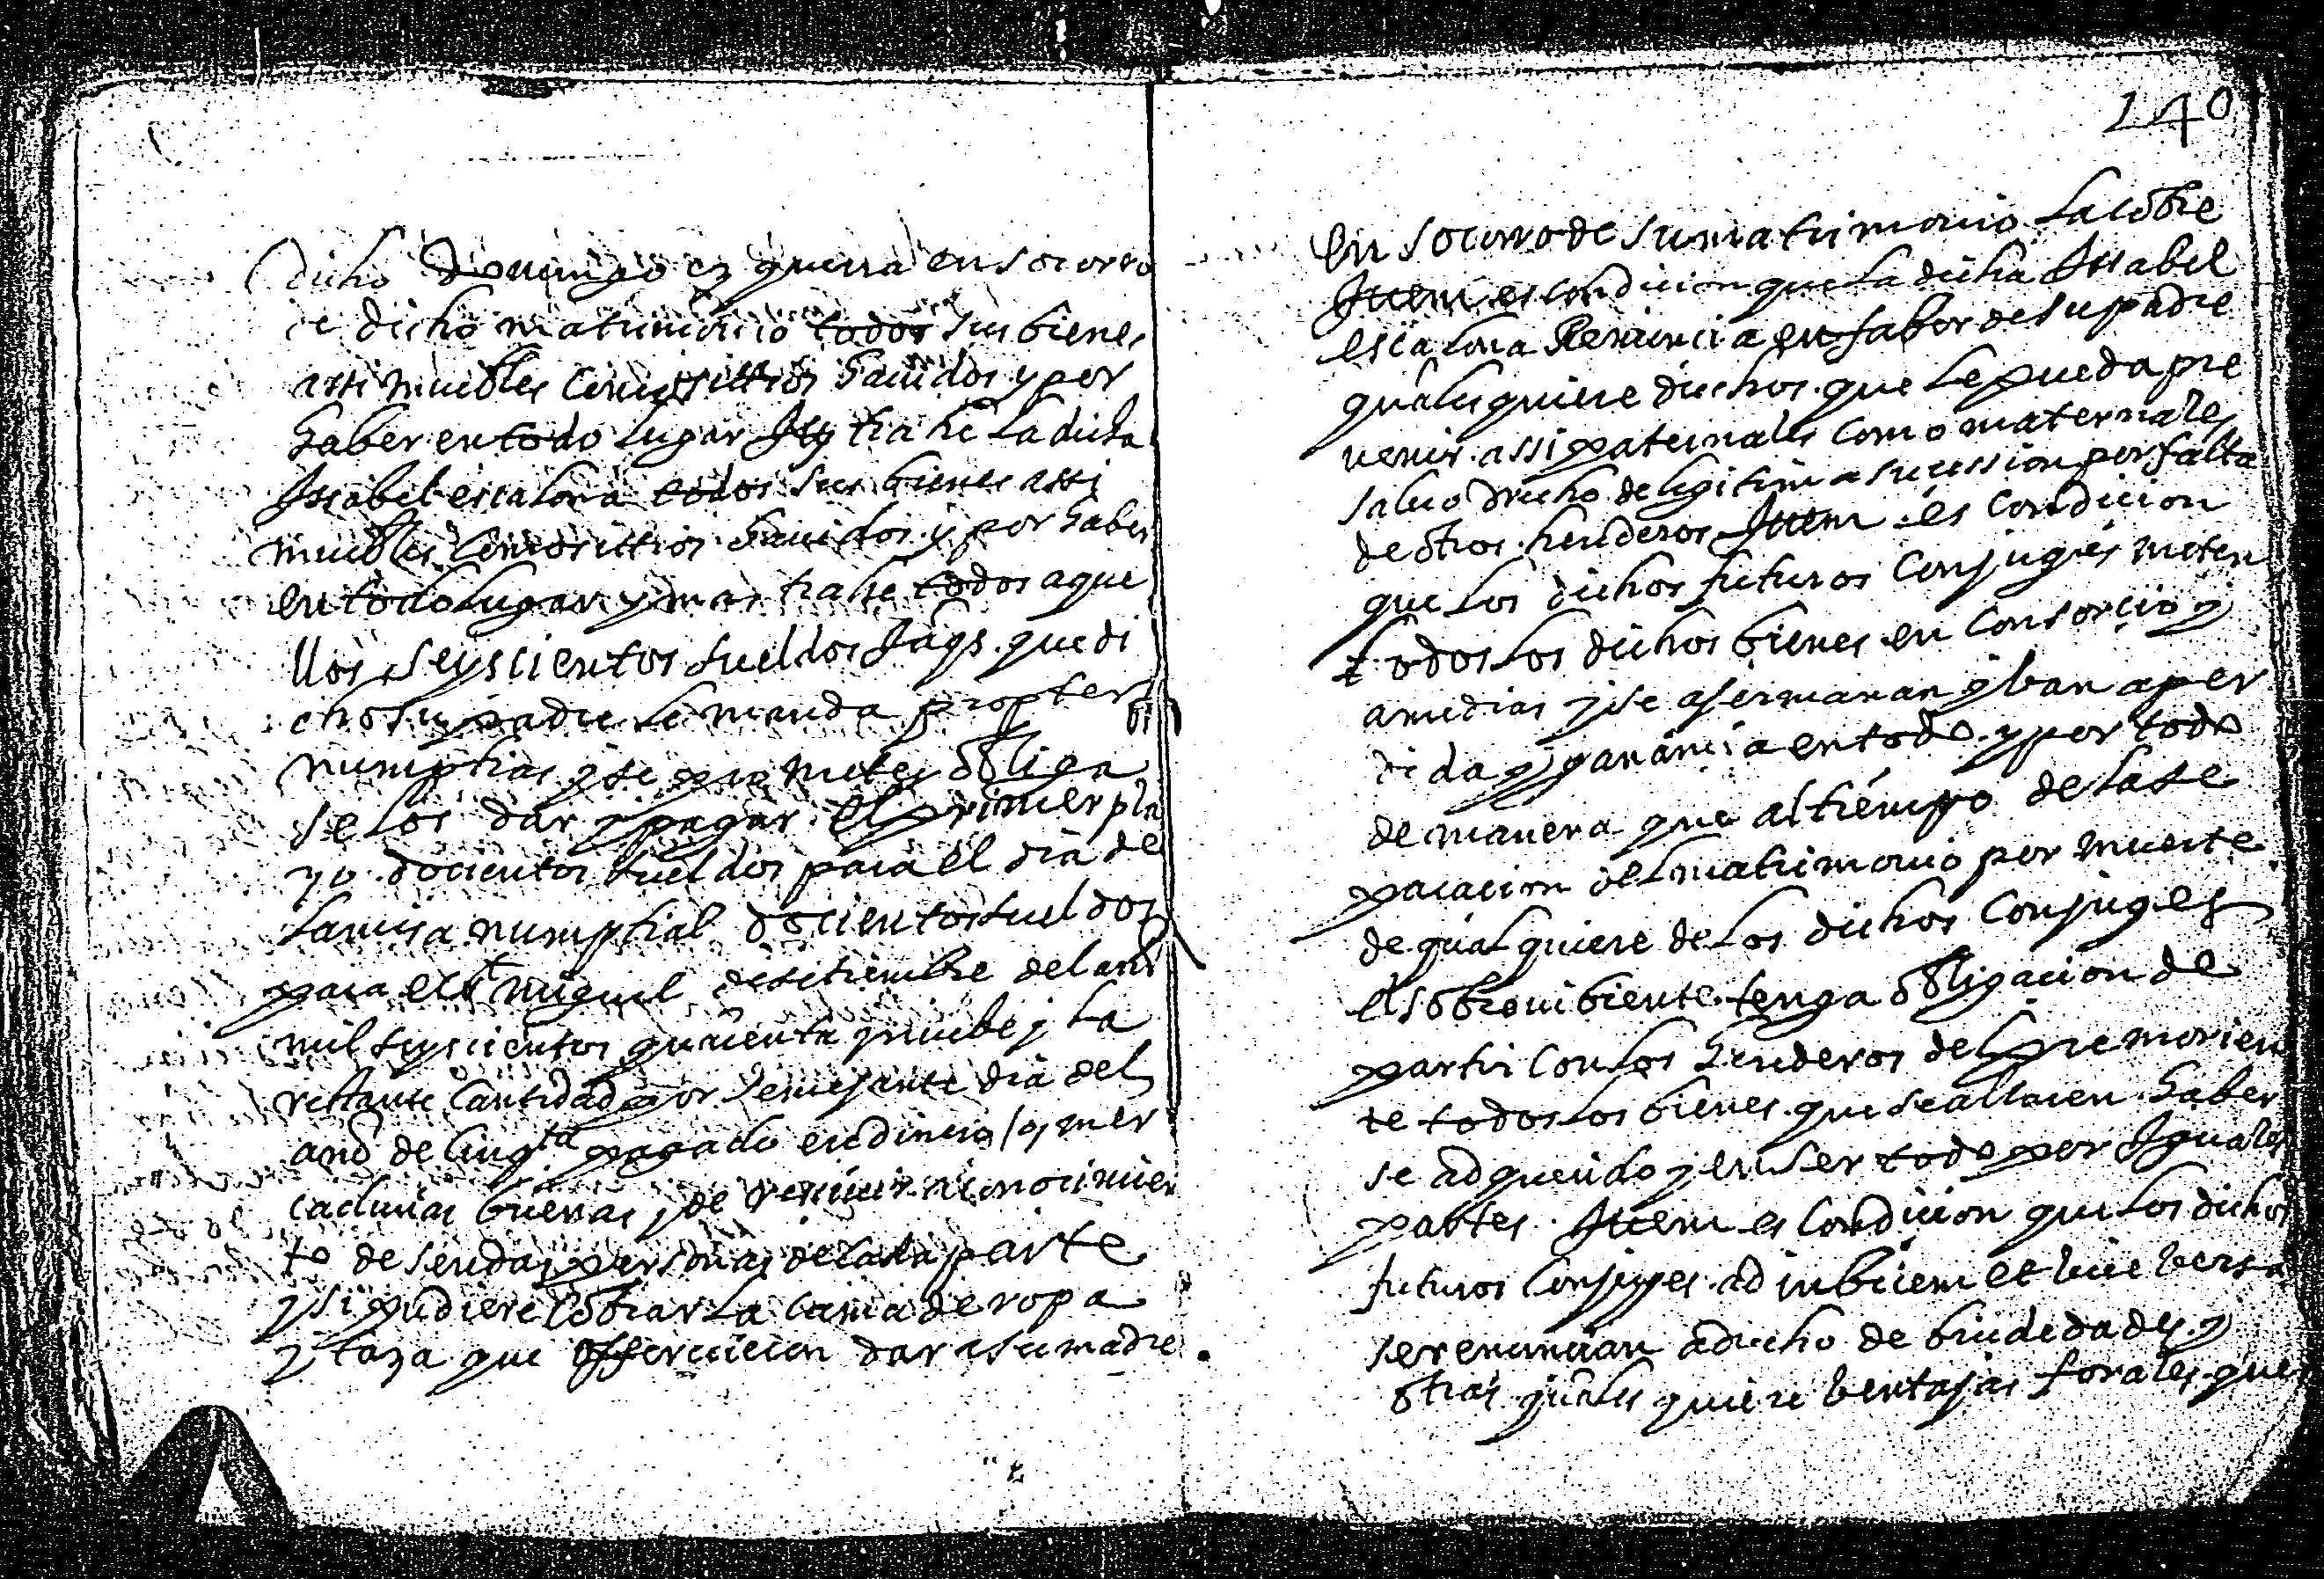 dicho Domingo ezquerra en socorro
de dicho matrimonio todos sus bienes
assi muebles como sittios hauidos y por
haber en todo lugar Itt trahe la dicha
Issabel escalona todos sus bienes assi
muebles como sittios hauidos y por haber
en todo lugar y mas trahe todos aque
llos seyscientos sueldos Jaqs. que di
cho su padre le manda propter
numptias y se promete y obliga
se los dar y pagar el primer pla
zo docientos sueldos para el dia de
la misa numptial docientos sueldos
para el st miguel de setiembre del año
mil seyscientos quarenta y nuebe y la
restante cantidad por semejante dia del
año de cinqta pagado en dinero / o mer
cadurias buenas y de reciuir a conocimien
to de sendas personas de cada parte
y si pudiere cobrar la cama de ropa
y taza que offercieron dar a su madre
140
en socorro de su matrimonio la cobre
Ittem es condicion que la dicha Issabel
escalona Renuncia en fabor de su padre
qualesquiere drechos que le pueda pre
venir assi paternales como maternales
saluo drecho de legitima sucession por falta
de otros herederos Ittem es condicion
que los dichos futuros conjuges meten
todos los dichos bienes en consorcio y
a medias y se agermanan y ban a per
dida y ganancia en todo y por todo
de manera que al tiempo de la se
paracion del matrimonio por muerte
de qualquiere de los dichos conjuges
el sobreuibiente tenga obligacion de
partir con los herederos del premorien
te todos los bienes que se allaren haber
se adquerido y en ser todo por Iguales
partes. Ittem es condicion que los dichos
futuros conjuges ad inbicem et vice versa
se renuncian a drecho de biudedades y
otras quales quiere bentajas forales que